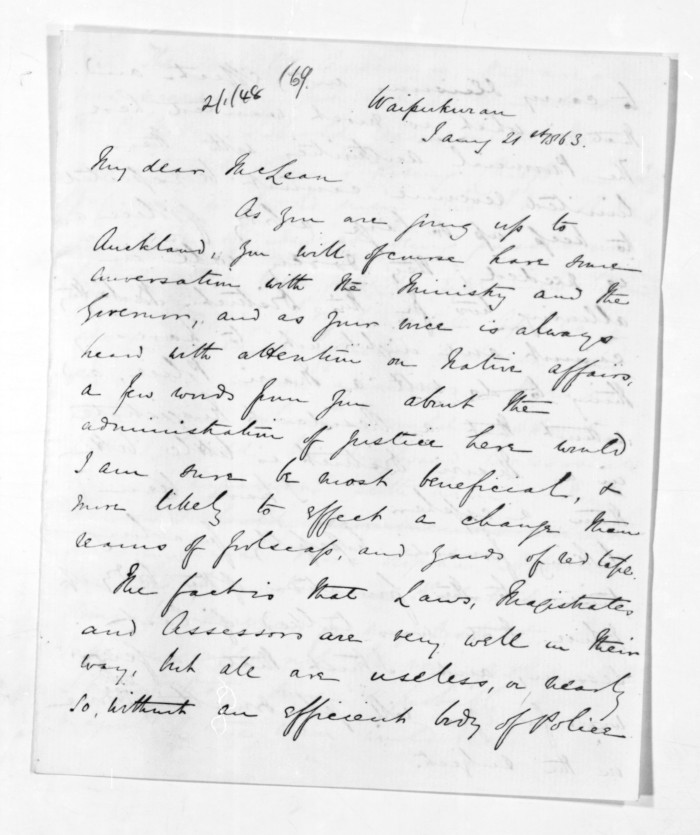 169.
2/1/48
Waipukurau
Jany 21st 1863.
My dear McLean
As you are going up to
Auckland, you will of course have some
conversation with the Ministry and the
Governor, and as your voice is always
heard with attention on Native affairs,
a few words from you about the
administration of justice here would
I am sure be most beneficial, &
more likely to effect a change than
reams of foolscap, and yards of red tape.
The fact is that Laws, Magistrates
and Assessors are very well in their
way, but all are useless, or nearly
so, without an efficient body of Police